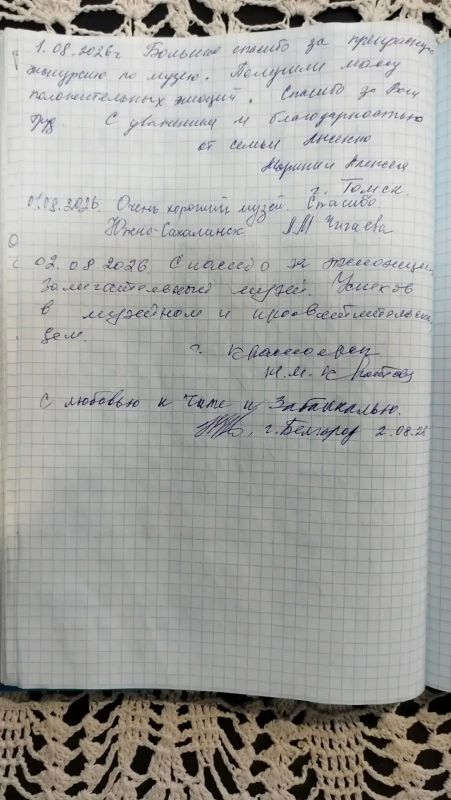 1.08.2026г Большое спасибо за прекрасную
экскурсию по музею. Получили массу
положительных эмоций. Спасибо за Ваш
труд. С уважением и благодарностью
от семьи
Марины и Алексея
г. Томск.
01.08.2026 Очень хороший музей. Спасибо.
Южно-Сахалинск Л М Чигаева
02.08 2026 Спасибо за
Замечательный музей Успехов
в музейном и
г. Красноярск
С любовью к Чите и Забайкалью.
г. Белгород 2.08.26